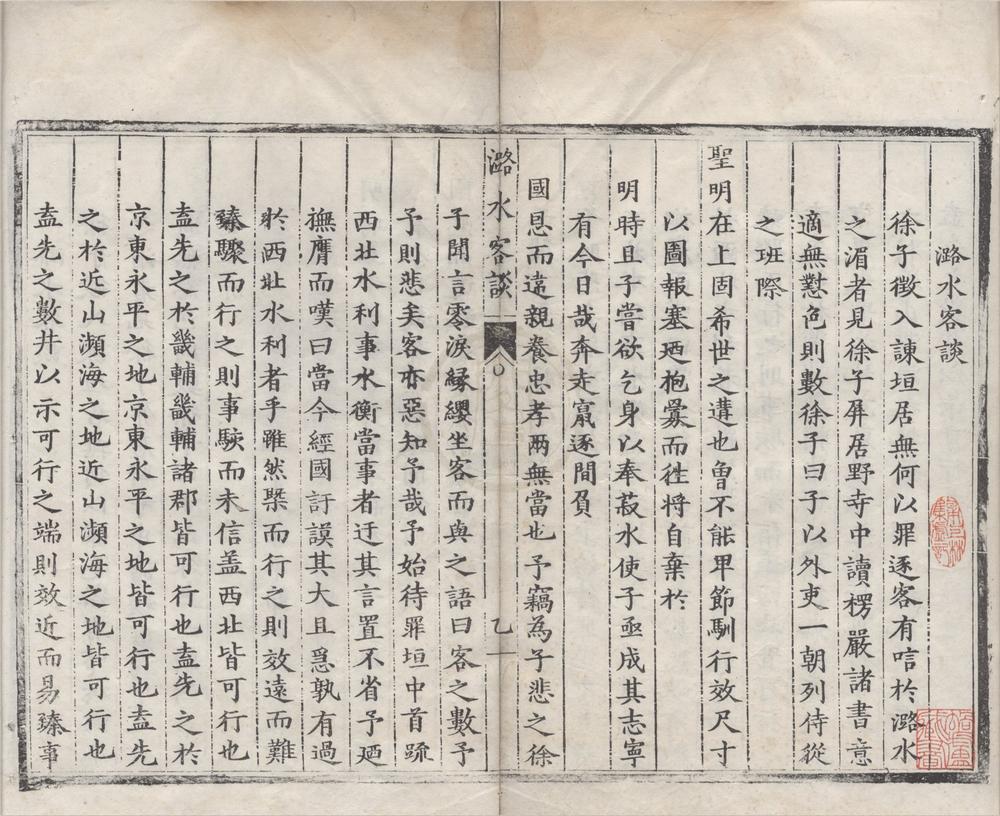 潞水客談
徐子徵入諫垣居無何以罪逐客有唁於潞水
之湄者見徐子屏居野寺中讀楞嚴諸書意
適無懟色則數徐子曰子以外吏一朝列侍從
之班際
聖明在上固希世之遘也曾不能卑節馴行效尺寸
以圖報塞廼抱釁而徃將自棄於
明時且子嘗欲乞身以奉菽水使子亟成其志寧
有今日哉奔走竄逐間負
國恩而違親養忠孝兩無當也予竊為子悲之徐
潞水客談
乙一
子聞言零淚緣纓坐客而與之語曰客之數予
予則悲矣客亦惡知予哉予始待罪垣中首䟽
西北水利事水衡當事者迂其言置不省予廼
撫膺而嘆曰當今經國訏謨其大且急孰有過
於西北水利者乎雖然槩而行之則效遠而難
臻驟而行之則事駭而未信盖西北皆可行也
盍先之於畿輔畿輔諸郡皆可行也盍先之於
京東永平之地京東永平之地皆可行也盍先
之於近山瀕海之地近山瀕海之地皆可行也
盍先之數井以示可行之端則效近而易臻事